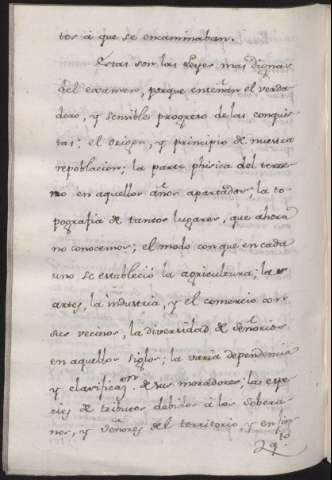 tos à que se encaminaban.
Estas son las Leyes mas dignas
del examen, porque enseñan el verda
dero, y sensible progreso de las conquis
tas: el origen, y principio de nuestra
repoblacion; la parte phisica del terre
no en aquellos años apartados; la to
pografia de tantos lugares, que ahora
no conocemos; el modo con que en cada
uno se estableció la agricultura; las
artes, la industria, y el comercio con
sus vecinos, la diversidad de señorios
en aquellos siglos; la varia dependencia
y clasificaçon. de sus moradores; las espe
cies de tributos debidos à los Sobera
nos, y Señores del territorio, y en